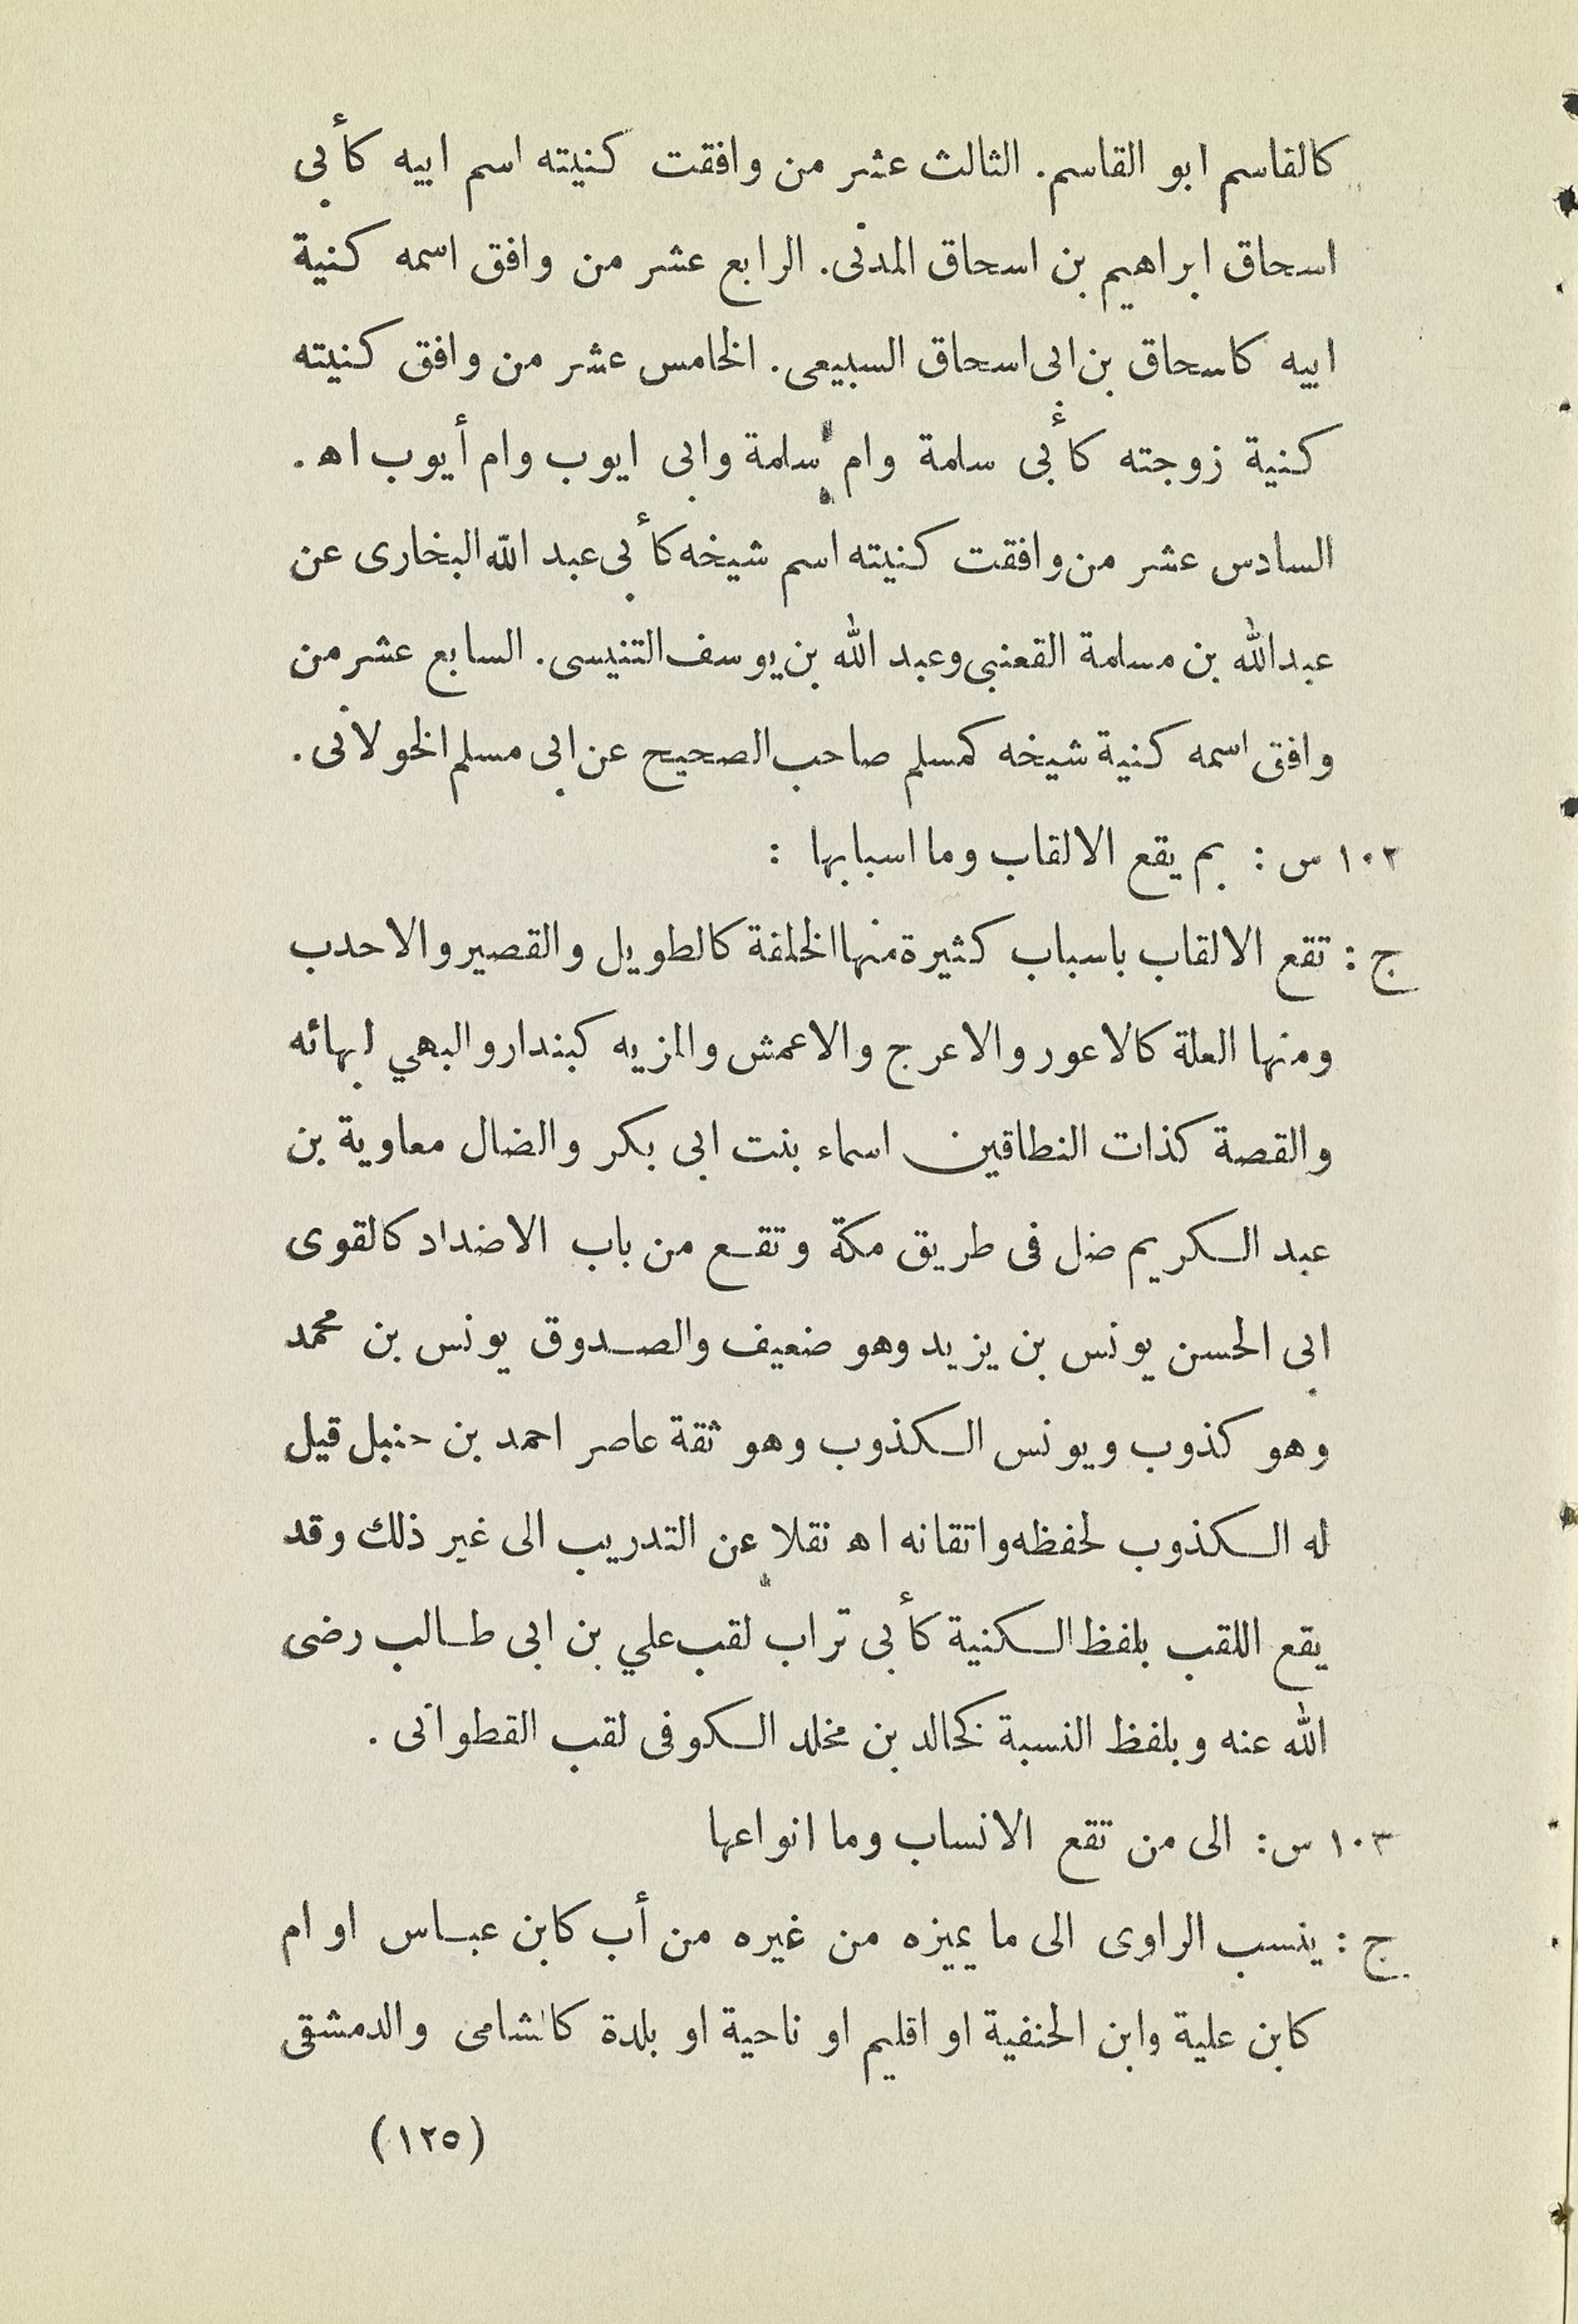 كالقاسم ابو القاسم. الثالث عشر من وافقت كنيته اسم ابيه كأبى
اسحاق ابراهيم بن اسحاق المدنى. الرابع عشر من وافق اسمه كنية
ابيه كاسحاق بن ابى اسحاق السبيعى. الخامس عشر من وافق كنيته
كنية زوجته كأبى سلمة وام سلمة وابى ايوب وام أيوب اه.
السادس عشر من وافقت كنيته اسم شيخه كأبى عبد الله البخارى عن
عبدالله بن مسلمة القعنبى وعبد الله بن يوسف التنيسى. السابع عشر من
وافق اسمه كنية شيخه كمسلم صاحب الصحيح عن ابى مسلم الخولانى.
١٠٢ س : بم يقع الالقاب وما اسبابها :
ج : تقع الالقاب باسباب كثيرة منها الخلقة كالطويل والقصير والاحدب
ومنها العلة كالاعور والاعرج والاعمش والمزيه كبندار والبهي لبهائه
والقصة كذات النطاقين اسماء بنت ابى بكر والضال معاوية بن
عبد الكريم ضل فى طريق مكة وتقع من باب الاضداد كالقوى
ابى الحسن يونس بن يزيد وهو ضعيف والصدوق يونس بن محمد
وهو كذوب ويونس الكذوب وهو ثقة عاصر احمد بن حنبل قيل
له الكذوب لحفظه واتقانه اه نقلا عن التدريب الى غير ذلك وقد
يقع اللقب بلفظ الكنية كأبى تراب لقب علي بن ابى طالب رضى
الله عنه وبلفظ النسبة كخالد بن مخلد الكوفى لقب القطوانى .
١٠٣ س : الى من تقع الانساب وما انواعها
ج : ينسب الراوى الى ما يميزه من غيره من أب كابن عباس او ام
كابن علية وابن الحنفية او اقليم او ناحية او بلدة كالشامى والدمشقى
(١٢٥)